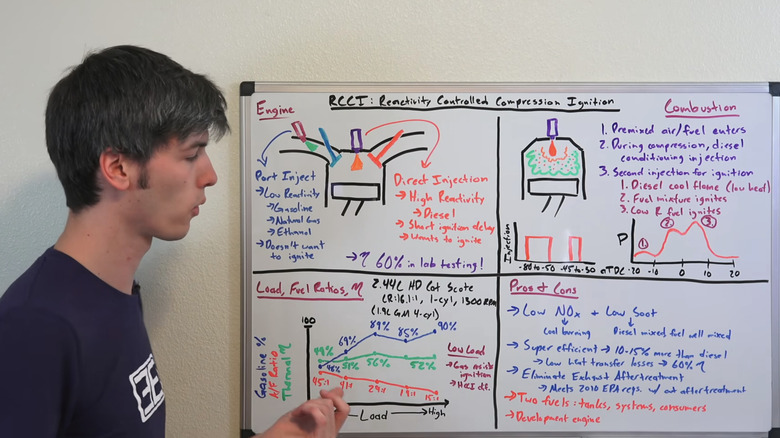 RCCI: Reactivity Controlled Compression Ignition
Engine
Port Inject
→ Low Reactivity
→ Gasoline
→ Natural Gas
→ Ethanol
→ Doesn't want
to ignite
Direct Injection
→ High Reactivity
→ Diesel
→ Short ignition delay
→ Wants to ignite
→ η 60% in lab testing!
Combustion
1. Premixed air/fuel enters
2. During compression, diesel
conditioning injection
3. Second injection for ignition
1. Diesel cool flame (low heat)
2. Fuel mixture ignites
3. Low R fuel ignites
Injection
-80 to -50
-45 to -30
°ATDC
P
1
2
3
-20 -10 0 10 20
Load, Fuel Ratios, η
2.44L HD Cat Score
(R:16.1:1, 1-cyl, 1300 RPM)
(1.9L GM 4-cyl)
100
Gasoline %
A/F Ratio
Thermal η
69% 89% 85% 90%
49% 51% 56% 52%
48%
45:1 41:1 29:1 19:1 15:1
Load → High
Low Load
→ Gas resists
ignition
Pros & Cons
→ Low NOx + Low Soot
Lean burning
Diesel mixed fuel well mixed
→ Super efficient → 10-15% more than diesel
→ Low heat transfer losses → 60% η
→ Eliminate Exhaust Aftertreatment
→ Meets 2010 EPA regs. w/out aftertreatment
→ Two fuels: tanks, systems, consumers
→ Development engine
EE